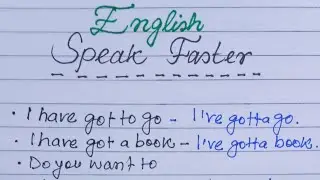 English
Speak Faster
• I have got to go - I've gotta go.
• I have got a book - I've gotta book.
• Do you want to